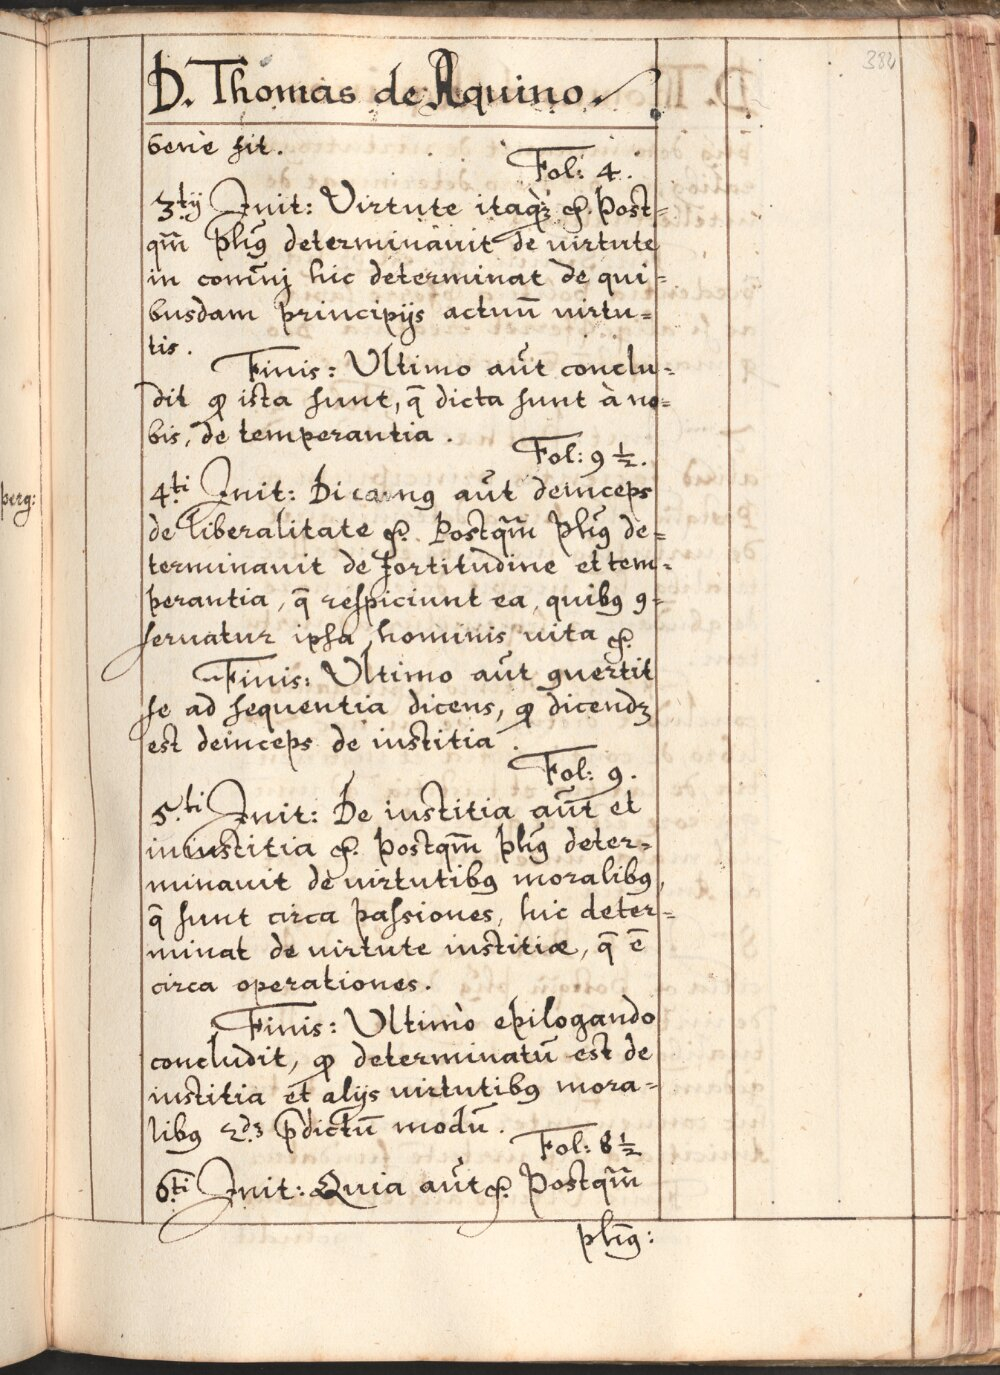 384
D. Thomas de Aquino.
benè sit.
Fol: 4.
3.tij Init: Virtute itaq́ꝫ &. Post=
qm̄ phūs determinauit de uirtute
in comūnj hic determinat de qui=
busdam principijs actuū uirtu=
tis.
Finis: Ultimo aūt conclu=
dit ꝙ ista sunt, q̄ dicta sunt à no=
bis, de temperantia.
Fol: 9 ½.
4.ti Init: Dicamꝰ aūt deinceps
de liberalitate &. Postqm̄ phūs de=
terminauit de fortitudine et tem=
perantia, q̄ respiciunt ea, quibꝰ ꝯ=
seruatur ipsa hominis uita &.
Finis: Ultimo aūt ꝯuertit
se ad sequentia dicens, ꝙ dicendꝫ
est deinceps de iustitia.
Fol: 9.
5.ti Init: De iustitia aūt et
iniustitia &. Postqm̄ phūs deter=
minauit de uirtutibꝰ moralibꝰ,
q̄ sunt circa passiones, hic deter=
minat de uirtute iustitiæ, q̄ ē
circa operationes.
Finis: Ultimò epilogando
concludit, ꝙ determinatū est de
iustitia et alijs uirtutibꝰ mora=
libꝰ 2dꝫ p̄dictū modū.
Fol: 8 ½
6.ti Init: Quia aūt &. Postqm̄
phūs:
perg: